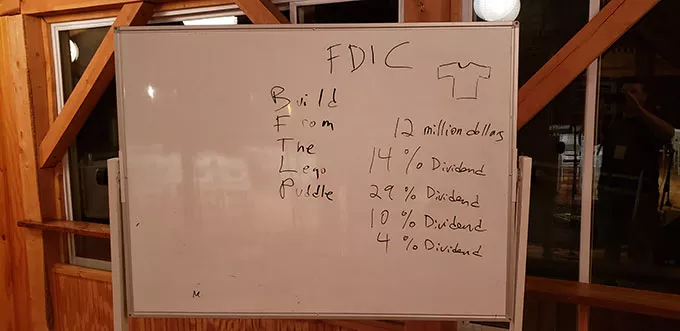 FDIC
Build
From
The
Lego
Puddle
12 million dollars
14 % Dividend
29 % Dividend
10 % Dividend
4 % Dividend
M